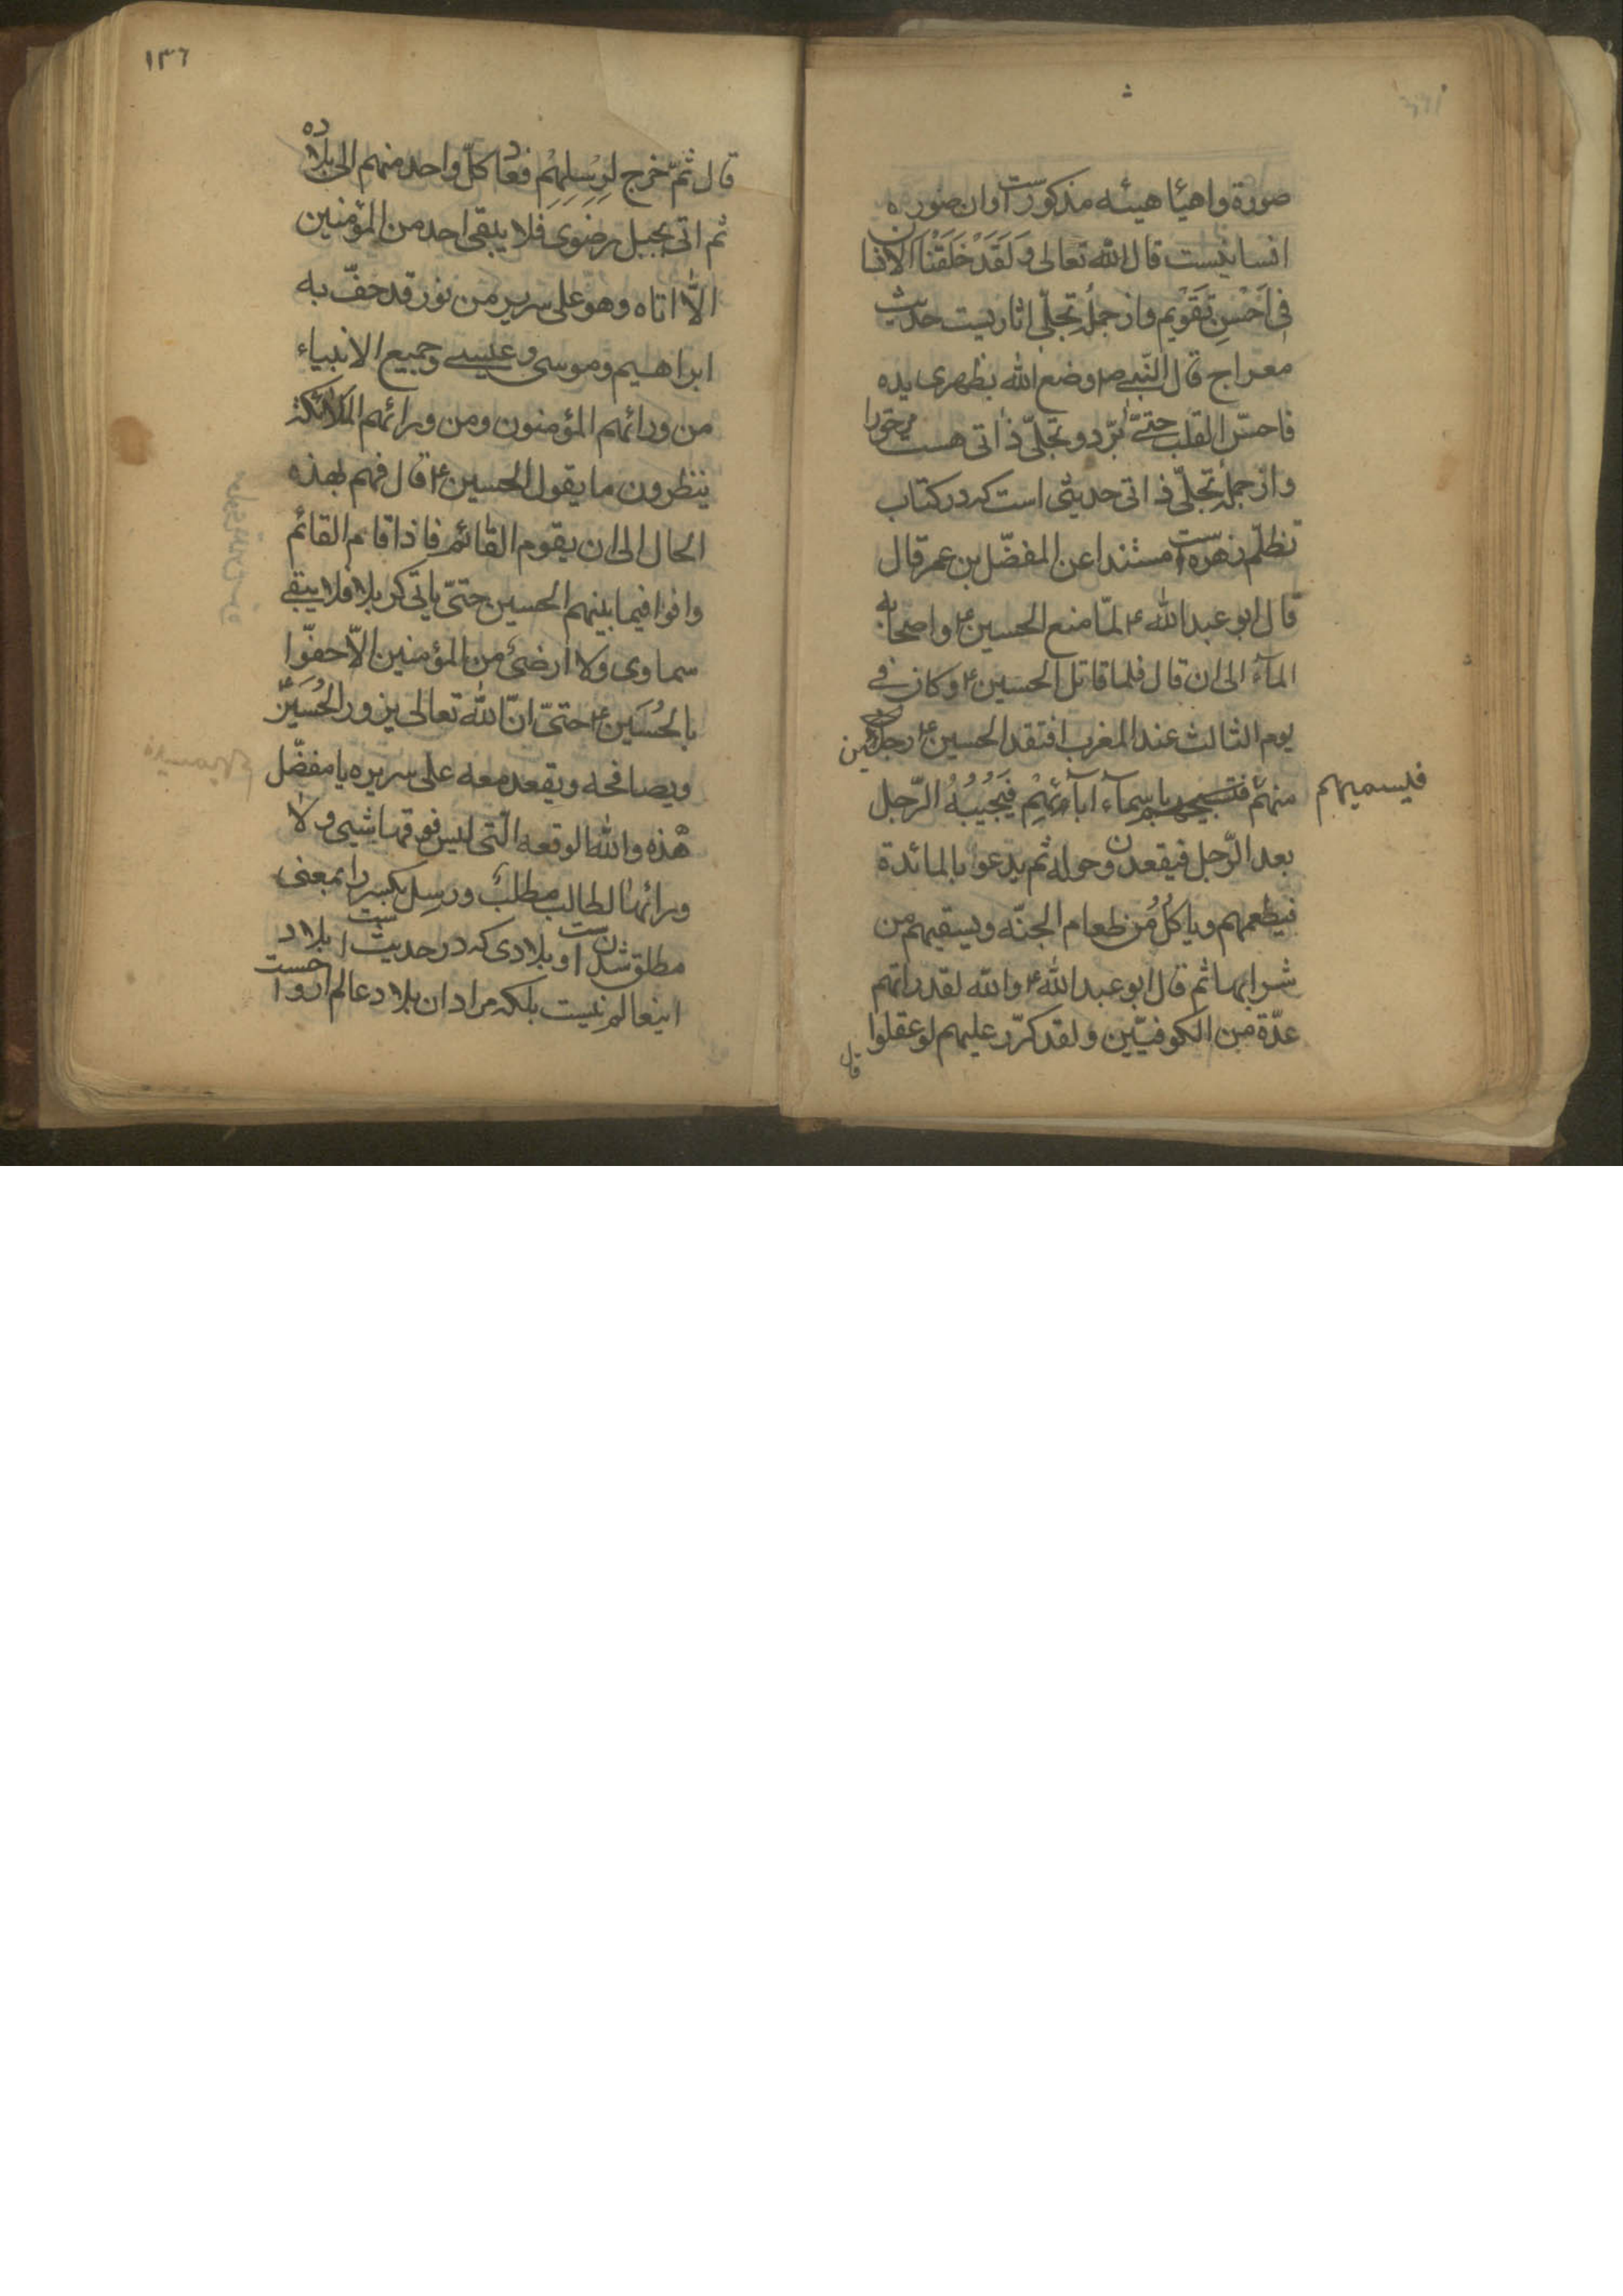 صورة واهيأ هيئه مذكورست و ان صوره
انسانيست قال الله تعالى وَلَقَدْ خَلَقْنَا الانسان
فى اَحْسَنِ تَقْوِيم و از جملۀ تجلّى اثاريست حديث
معراج قال النّبى ص وضع الله بظهرى يده
فاحسّ القلب حتىّ برّد و تجلّى ذاتى هست
و از جملۀ تجلّى ذاتى حديثى است كه در كتاب
تظلّم زهره است مستندا عن المفضّل بن عمر قال
قال ابو عبد الله ع لمّا منع الحسين ع و اصحابه
المآء الى ان قال فلما قاتل الحسين ع و كان فى
يوم الثالث عند المغرب افتقد الحسين ع رجل
منهم باسمآء آبآئهم فَيُجيبُهُ الرّجل
فيسميهم
بعد الرّجل فيقعدون حوله ثم يدعوا بالمائدة
فيطعمهم و ياكل من طعام الجنّه و يسقيهم من
شرابها ثم قال ابو عبد الله ع والله لقد راتهم
عدّة من الكوفيّين و لقد كرّر عليهم لو عقلوا
قال
١٣٦
قال ثمّ خرج لرسلهم فعاد كلّ واحد منهم الى بلاده
ثم اتى بجبل رضوى فلا يبقى احد من المؤمنين
الّا اتاه و هو على سرير من نور قد حفّ به
ابراهيم و موسى و عيسى و جميع الانبياء
من ورائهم المؤمنون و من ورائهم الملائكة
ينظرون ما يقول الحسين ع قال فهم بهذه
الحال الى ان يقوم القائم فاذا قام القائم
وافوا فيما بينهم الحسين حتىّ ياتى كربلا فلا يبقى
سماوى ولا ارضى من المؤمنين الّا حفّوا
بالحُسَين ع حتىّ انّ الله تعالى يزور الحُسَين ع
و يصافحه و يقعد معه على سريره يا مفضّل
هذه والله الوقعه الّتى ليس فوقها شيئ و لا
ورائها لطالب مطلب و رسل بكسر را بمعنى
مطلق شدنست و بلادى كه در حديثست بلاد
اينعالم نيست بلكه مراد ان بلاد عالم ارواحست